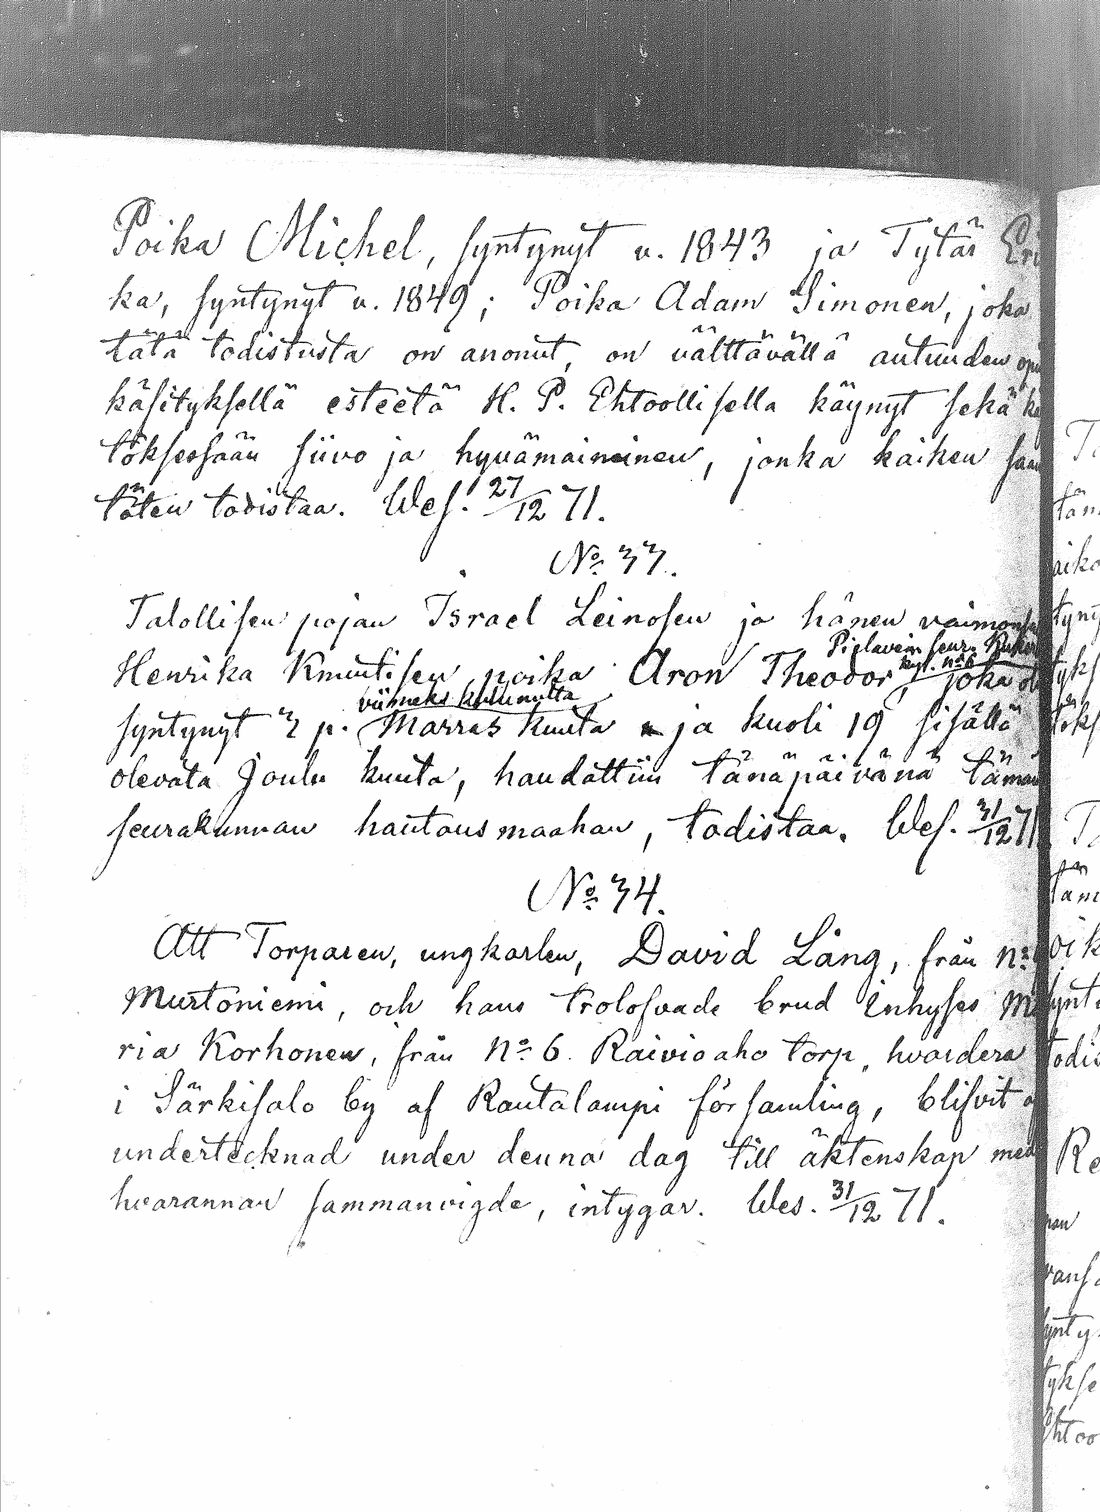 Poika Michel, syntynyt v. 1843 ja Tytär Eri
ka, syntynyt v. 1849; Poika Adam Simonen, joka
tätä todistusta on anonut, on välttävällä autuuden opin
käsityksellä esteetä H. P. Ehtoollisella käynyt sekä
töksessään siivo ja hyvämaineinen, jonka kaiken saan
täten todistaa. Wes. 27/12 71.
No 33.
Talollisen pojan Israel Leinosen ja hänen vaimonsa
Pielaveden seur.
kyl. no 6
Henrika Knuutisen poika Aron Theodor, joka oli
viimeks kulunutta
syntynyt 3 p. Marras kuuta ja kuoli 19 sisällä
olevata Joulu kuuta, haudattiin tänäpäivänä tämän
seurakunnan hautausmaahan, todistaa. Wes. 31/12 71.
No 34.
Att Torparen, ungkarlen, David Lång, från no
Murtoniemi, och hans trolofvade brud Inhyses Ma
ria Korhonen, från No 6 Raivioaho torp, hvardera
i Särkisalo by af Rautalampi församling, blifvit af
undertecknad under denna dag till äktenskap med
hvarannan sammanvigde, intygar. Wes. 31/12 71.